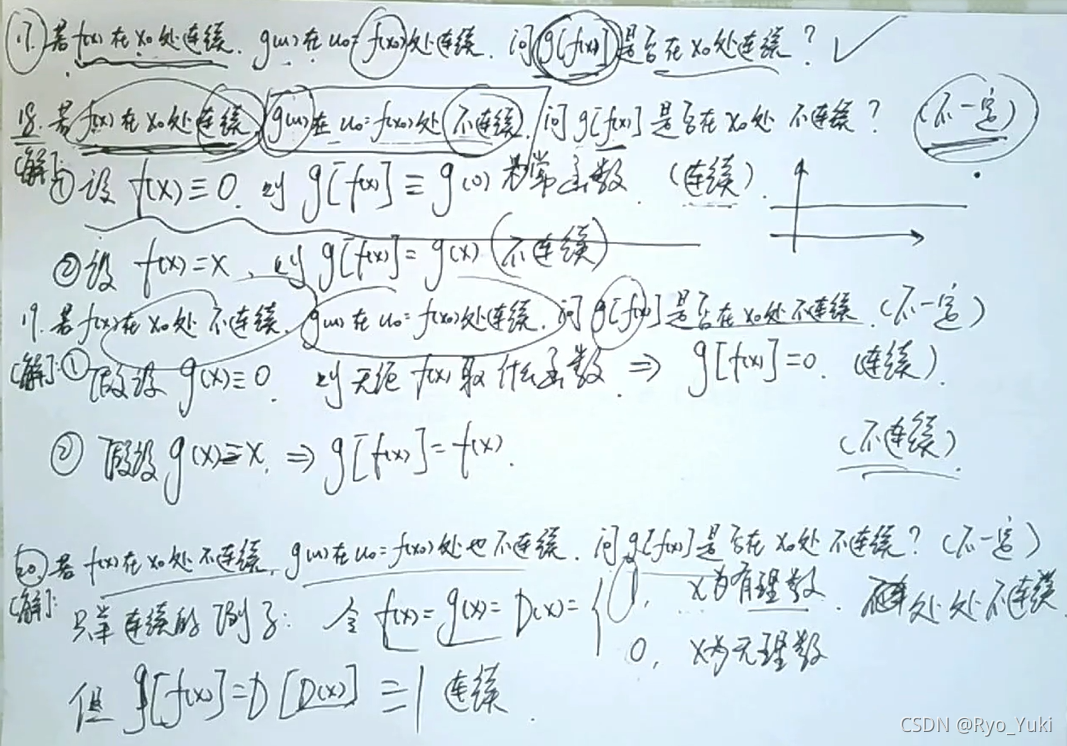 17. 若f(x)在x0处连续, g(u)在u0=f(x0)处连续, 问g[f(x)]是否在x0处连续? ✓
18. 若f(x)在x0处连续, g(u)在u0=f(x0)处不连续, 问g[f(x)]是否在x0处不连续? (不一定)
[解]: ① 设 f(x)≡0, 则 g[f(x)]≡g(0) 是常函数 (连续).
② 设 f(x)=x, 则 g[f(x)]=g(x) (不连续)
19. 若f(x)在x0处不连续, g(u)在u0=f(x0)处连续, 问g[f(x)]是否在x0处不连续. (不一定)
[解]: ① 假设 g(x)≡0. 则无论f(x)取什么函数 ⇒ g[f(x)]=0. (连续).
② 假设 g(x)≡x, ⇒ g[f(x)]=f(x). (不连续).
20. 若f(x)在x0处不连续, g(u)在u0=f(x0)处也不连续, 问g[f(x)]是否在x0处不连续? (不一定)
[解]: 只举连续的例子: 令 f(x)=g(x)=D(x)={ 1, x为有理数 处处不连续
0, x为无理数
但 g[f(x)]=D[D(x)]≡1 连续.
CSDN @Ryo_Yuki